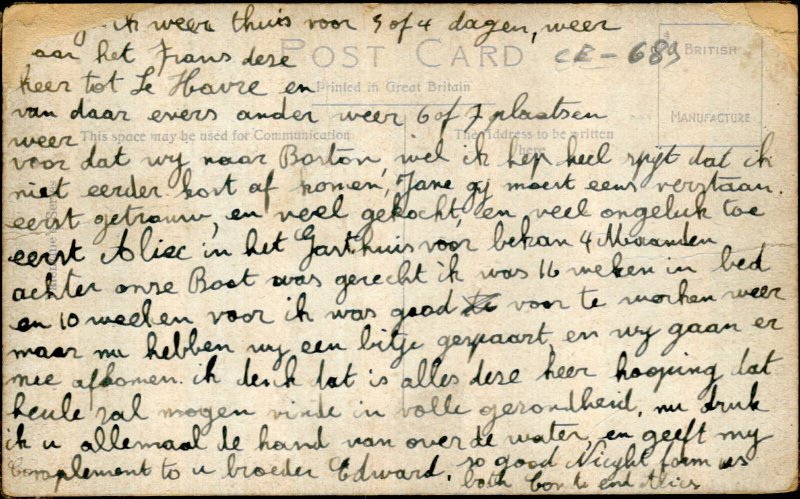 ik weer thuis voor 3 of 4 dagen, weer
POST CARD
CE - 689
BRITISH
MANUFACTURE
aar het Frans dese
keer tot Le Havre en
Printed in Great Britain
van daar evers ander weer 6 of 7 plaatsen
weer
This space may be used for Communication
The Address to be written
here
voor dat wy naar Boston, wel ik hep heel spyt dat ik
niet eerder kost af komen, Jane gy moest eens verstaan.
eerst getrouw, en veel gekocht, en veel ongeluk toe
eerst Aliec in het Gasthuis voor bekan 4 Maanden
achter onse Boot was gerecht ik was 16 weken in bed
en 10 weeken voor ik was good voor te worken weer
maar nu hebben wy een bitje gespaart, en wy gaan er
mee afkomen. ik denk dat is alles dese keer hooping dat
keule zal mogen vinde in volle gezondheid, nu druk
ik u allemaal de hand van over de water, en geeft my
Complement to u broeder Edward. so good Nieght form us
both en Alies